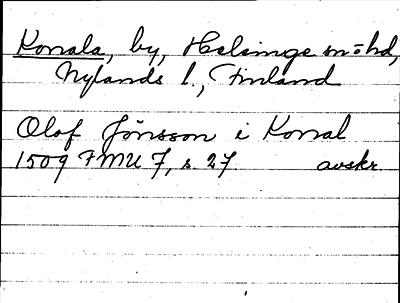 Konala, by, Helsinge sn o hd,
Nylands l., Finland
Olof Jönsson i Konal
1509 FMU 7, s. 27 avskr.